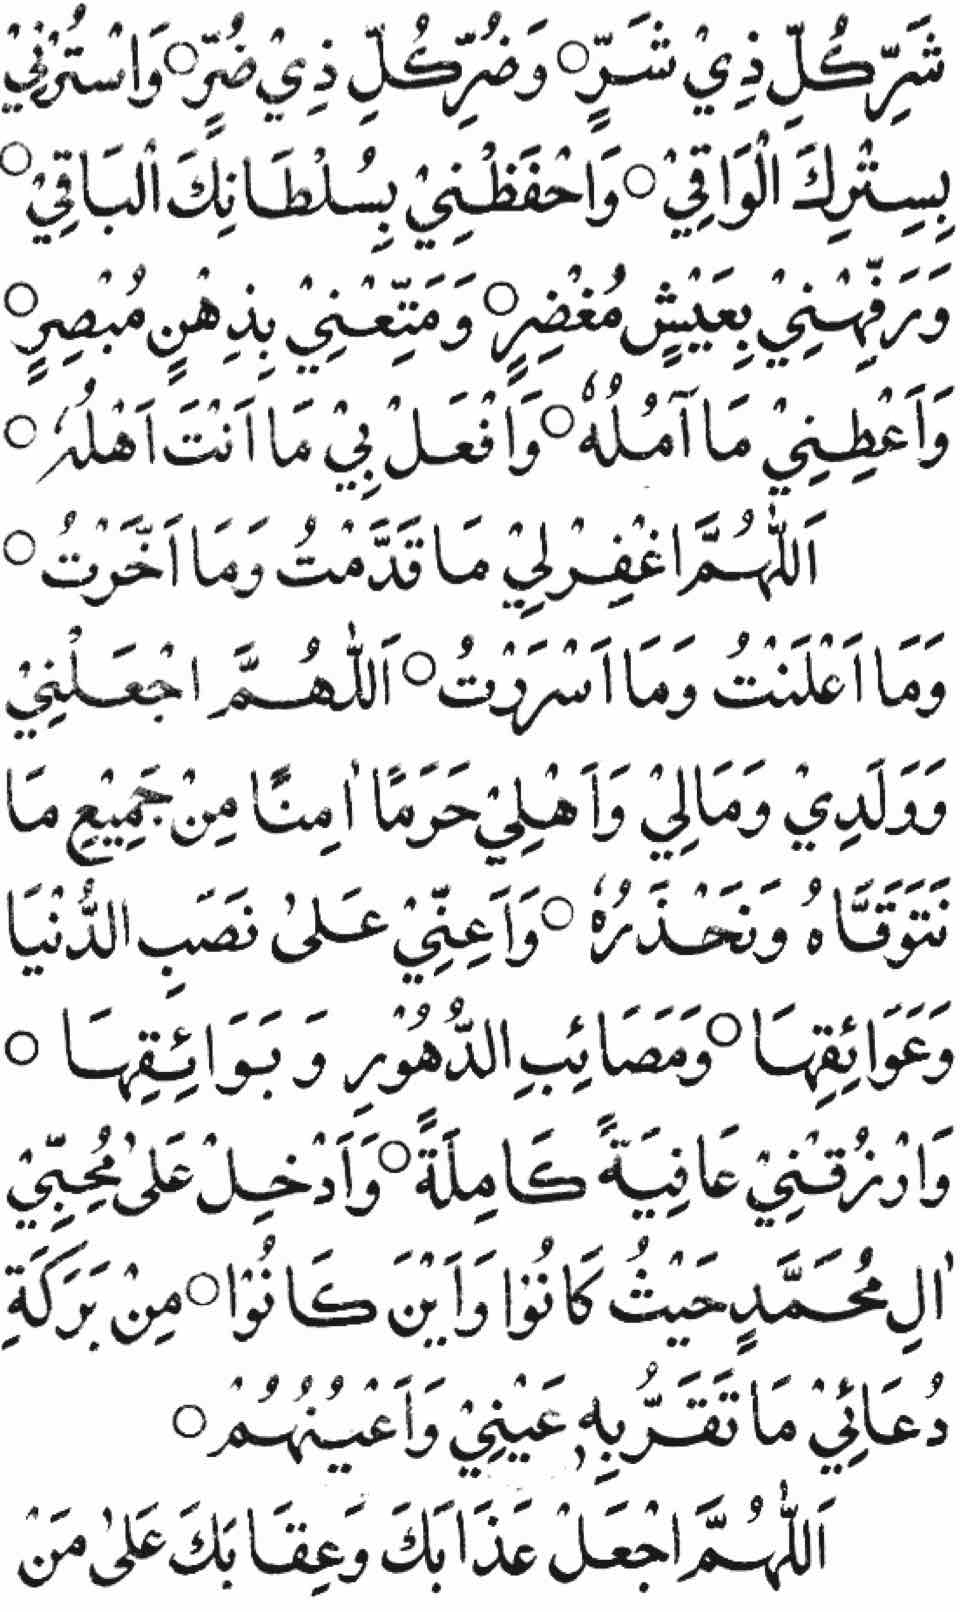 شَرِّ كُلِّ ذِيْ شَرٍّ ○ وَضُرِّ كُلِّ ذِيْ ضُرٍّ ○ وَاسْتُرْنِيْ
بِسِتْرِكَ الْوَاقِيْ ○ وَاحْفَظْنِيْ بِسُلْطَانِكَ الْبَاقِيْ ○
وَرَفِّهْنِيْ بِعَيْشٍ مُغْضِرٍ ○ وَمَتِّعْنِيْ بِذِهْنٍ مُبْصِرٍ ○
وَاَعْطِنِيْ مَا آمُلُهٗ ○ وَافْعَلْ بِيْ مَا اَنْتَ اَهْلُهٗ ○
اَللّٰهُمَّ اغْفِرْ لِيْ مَا قَدَّمْتُ وَمَا اَخَّرْتُ ○
وَمَا اَعْلَنْتُ وَمَا اَسْرَرْتُ ○ اَللّٰهُمَّ اجْعَلْنِيْ
وَوَلَدِيْ وَمَالِيْ وَاَهْلِيْ حَرَمًا اٰمِنًا مِنْ جَمِيْعِ مَا
نَتَوَقَّاهُ وَنَحْذَرُهٗ ○ وَاَعِنِّيْ عَلٰى نَصَبِ الدُّنْيَا
وَعَوَائِقِهَا ○ وَمَصَائِبِ الدُّهُوْرِ وَبَوَائِقِهَا ○
وَارْزُقْنِيْ عَافِيَةً كَامِلَةً ○ وَاَدْخِلْ عَلٰى مُحِبِّيْ
اٰلِ مُحَمَّدٍ حَيْثُ كَانُوْا وَاَيْنَ كَانُوْا ○ مِنْ بَرَكَةِ
دُعَائِيْ مَا تَقَرُّ بِهٖ عَيْنِيْ وَاَعْيُنُهُمْ ○
اَللّٰهُمَّ اجْعَلْ عَذَابَكَ وَعِقَابَكَ عَلٰى مَنْ